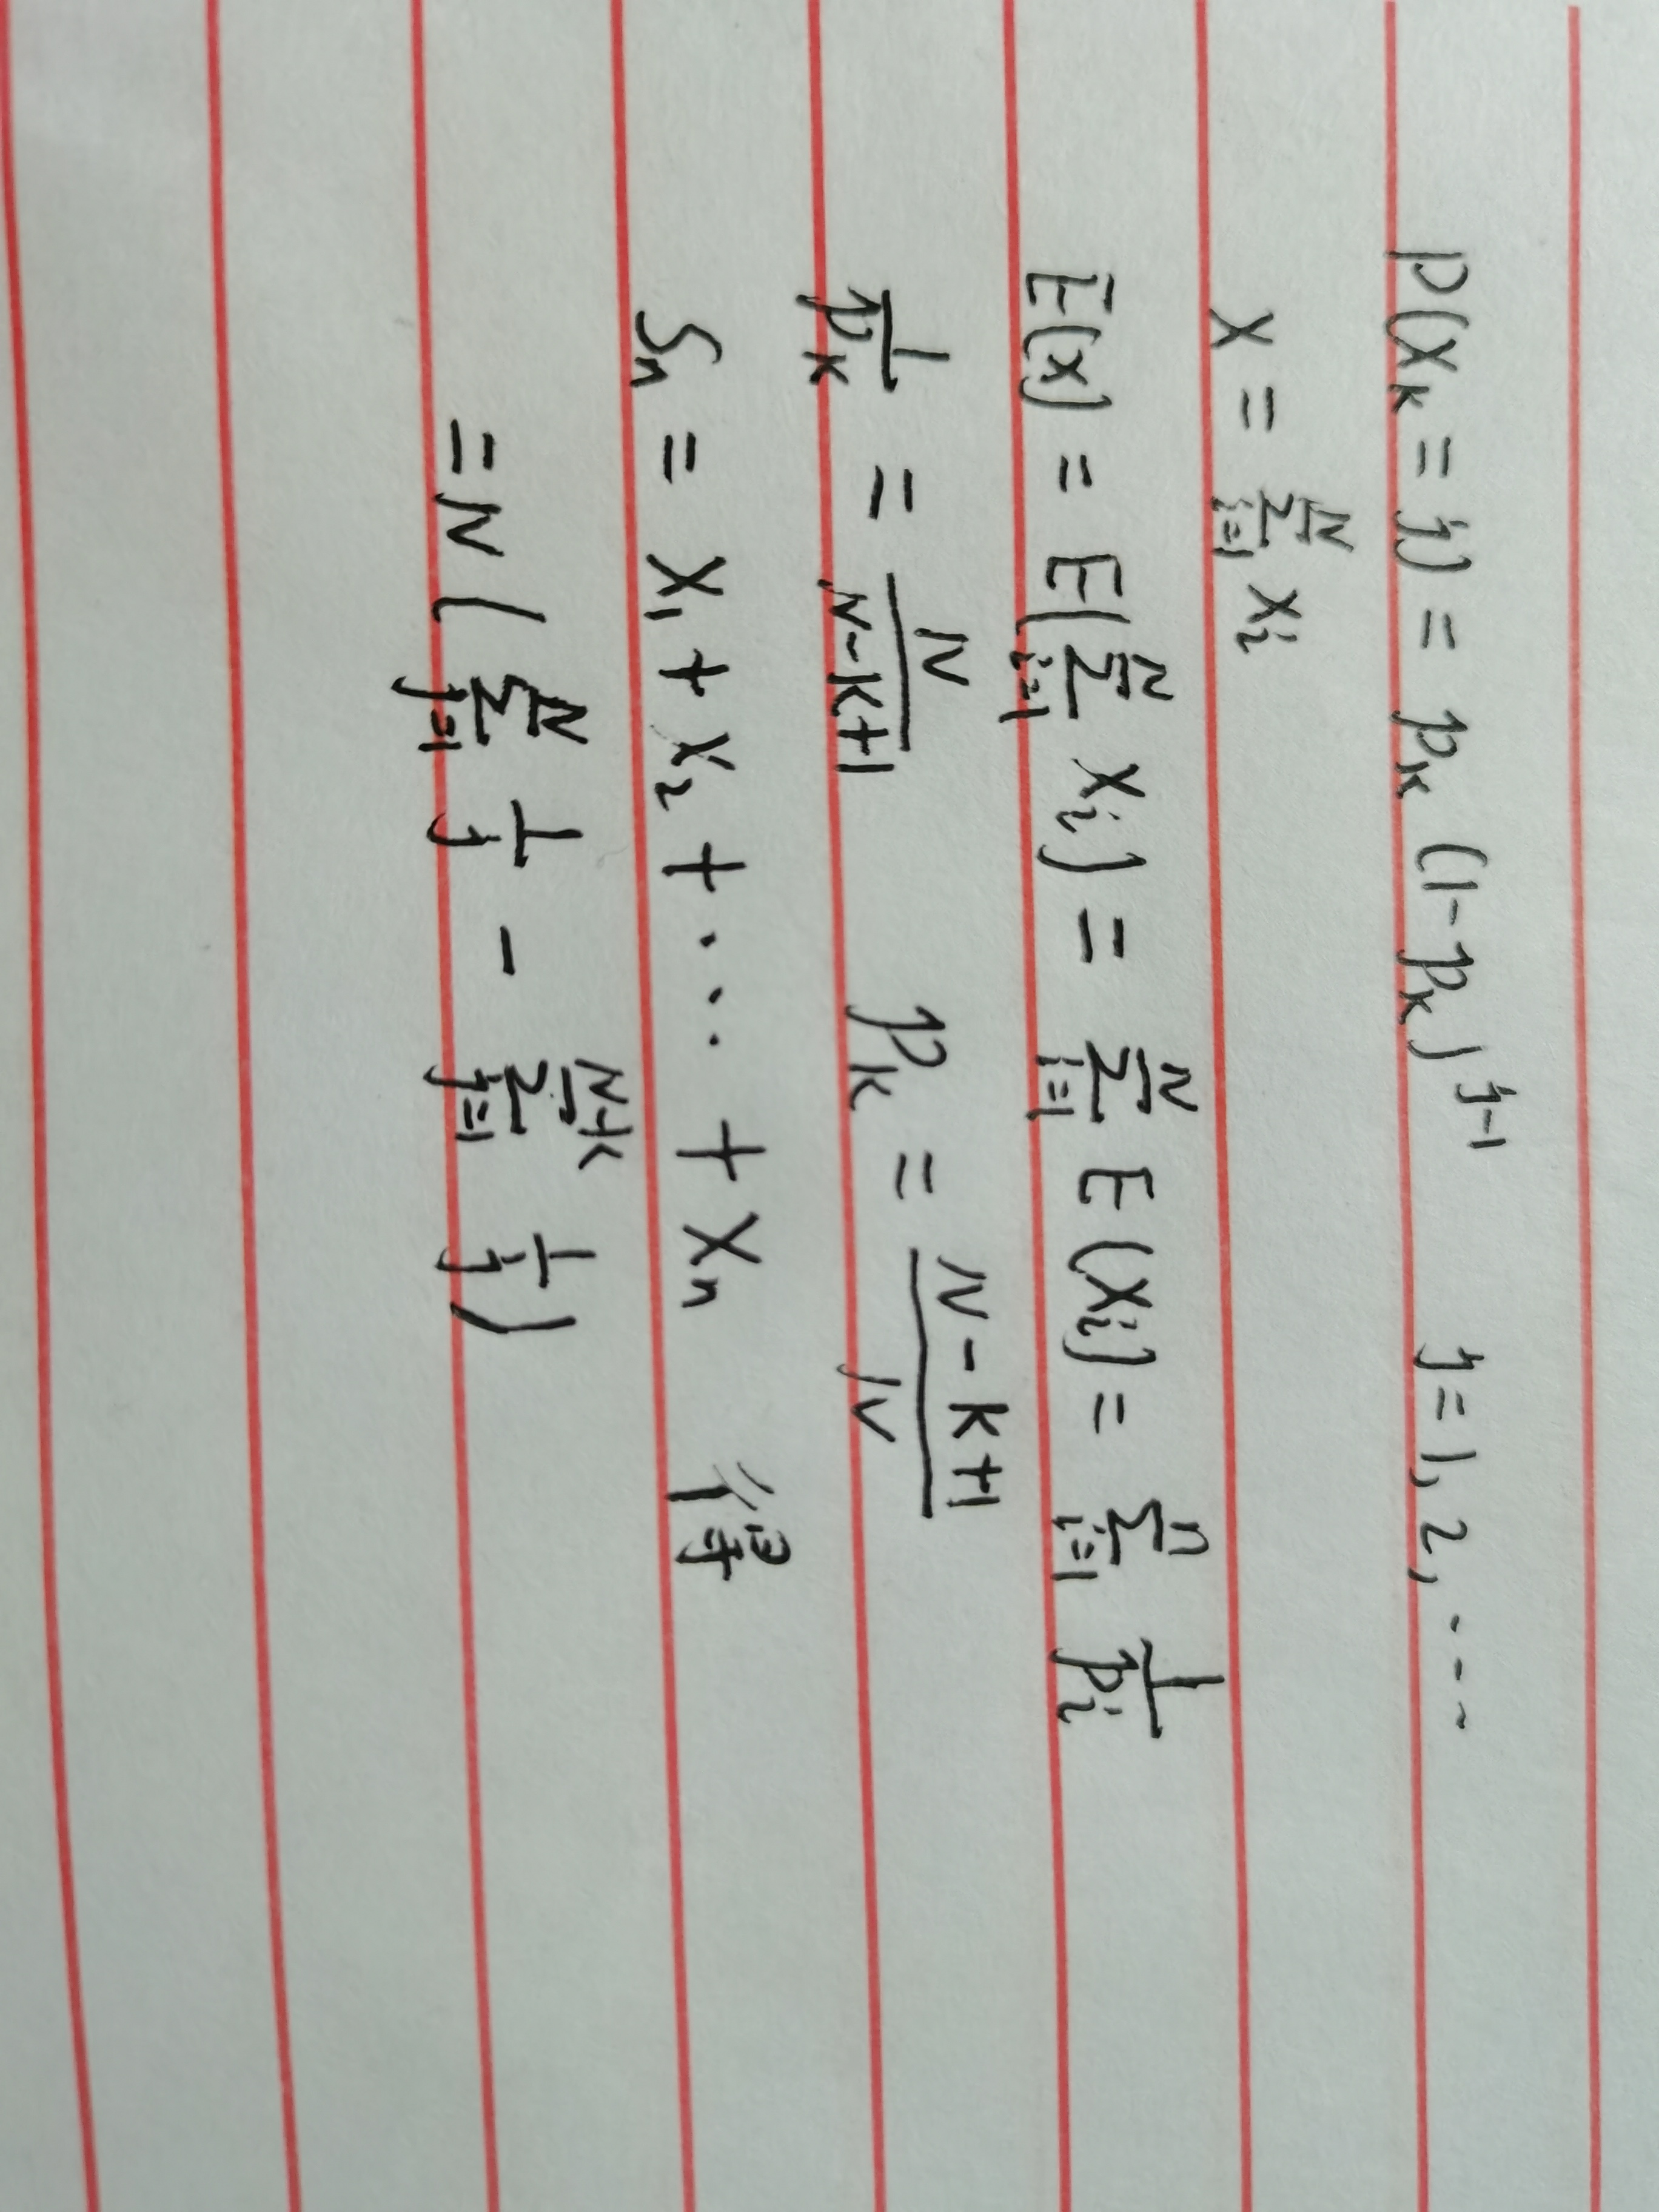 P(X_k = j) = p_k (1-p_k)^{j-1} j=1, 2, ...
X = \sum_{i=1}^{N} X_i
E(X) = E(\sum_{i=1}^{N} X_i) = \sum_{i=1}^{N} E(X_i) = \sum_{i=1}^{n} \frac{1}{p_i}
\frac{1}{p_k} = \frac{N}{N-k+1} p_k = \frac{N-k+1}{N}
S_n = X_1 + X_2 + ... + X_n 得
= N (\sum_{j=1}^{N} \frac{1}{j} - \sum_{j=1}^{N-k} \frac{1}{j})